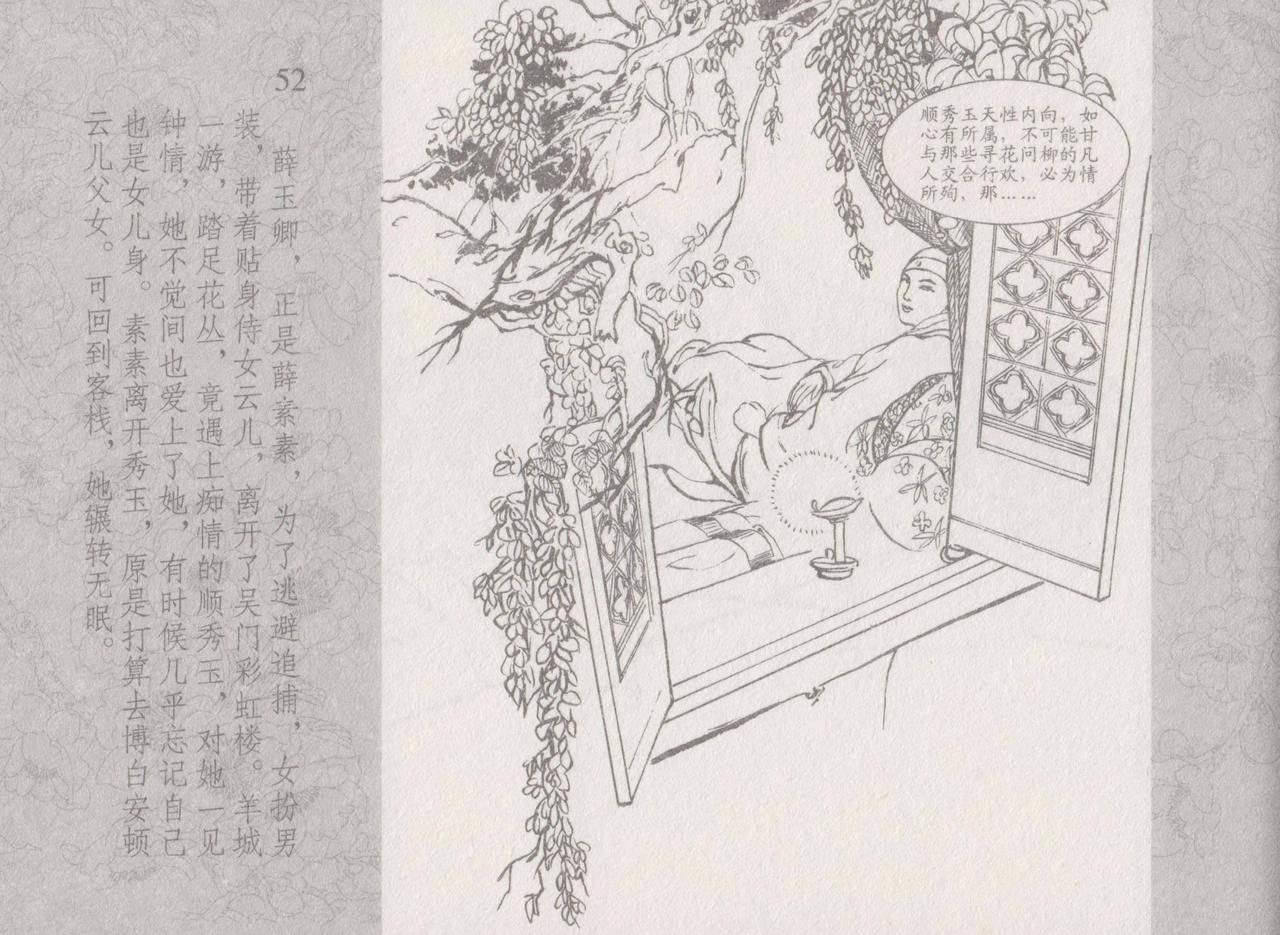 52
薛玉卿，正是薛素素，为了逃避追捕，女扮男
装，带着贴身侍女云儿，离开了吴门彩虹楼。羊城
一游，踏足花丛，竟遇上痴情的顺秀玉，对她一见
钟情，她不觉间也爱上了她，有时候几乎忘记自己
也是女儿身。素素离开秀玉，原是打算去博白安顿
云儿父女。可回到客栈，她辗转无眠。
顺秀玉天性内向，如
心有所属，不可能甘
与那些寻花问柳的凡
人交合行欢，必为情
所殉，那……